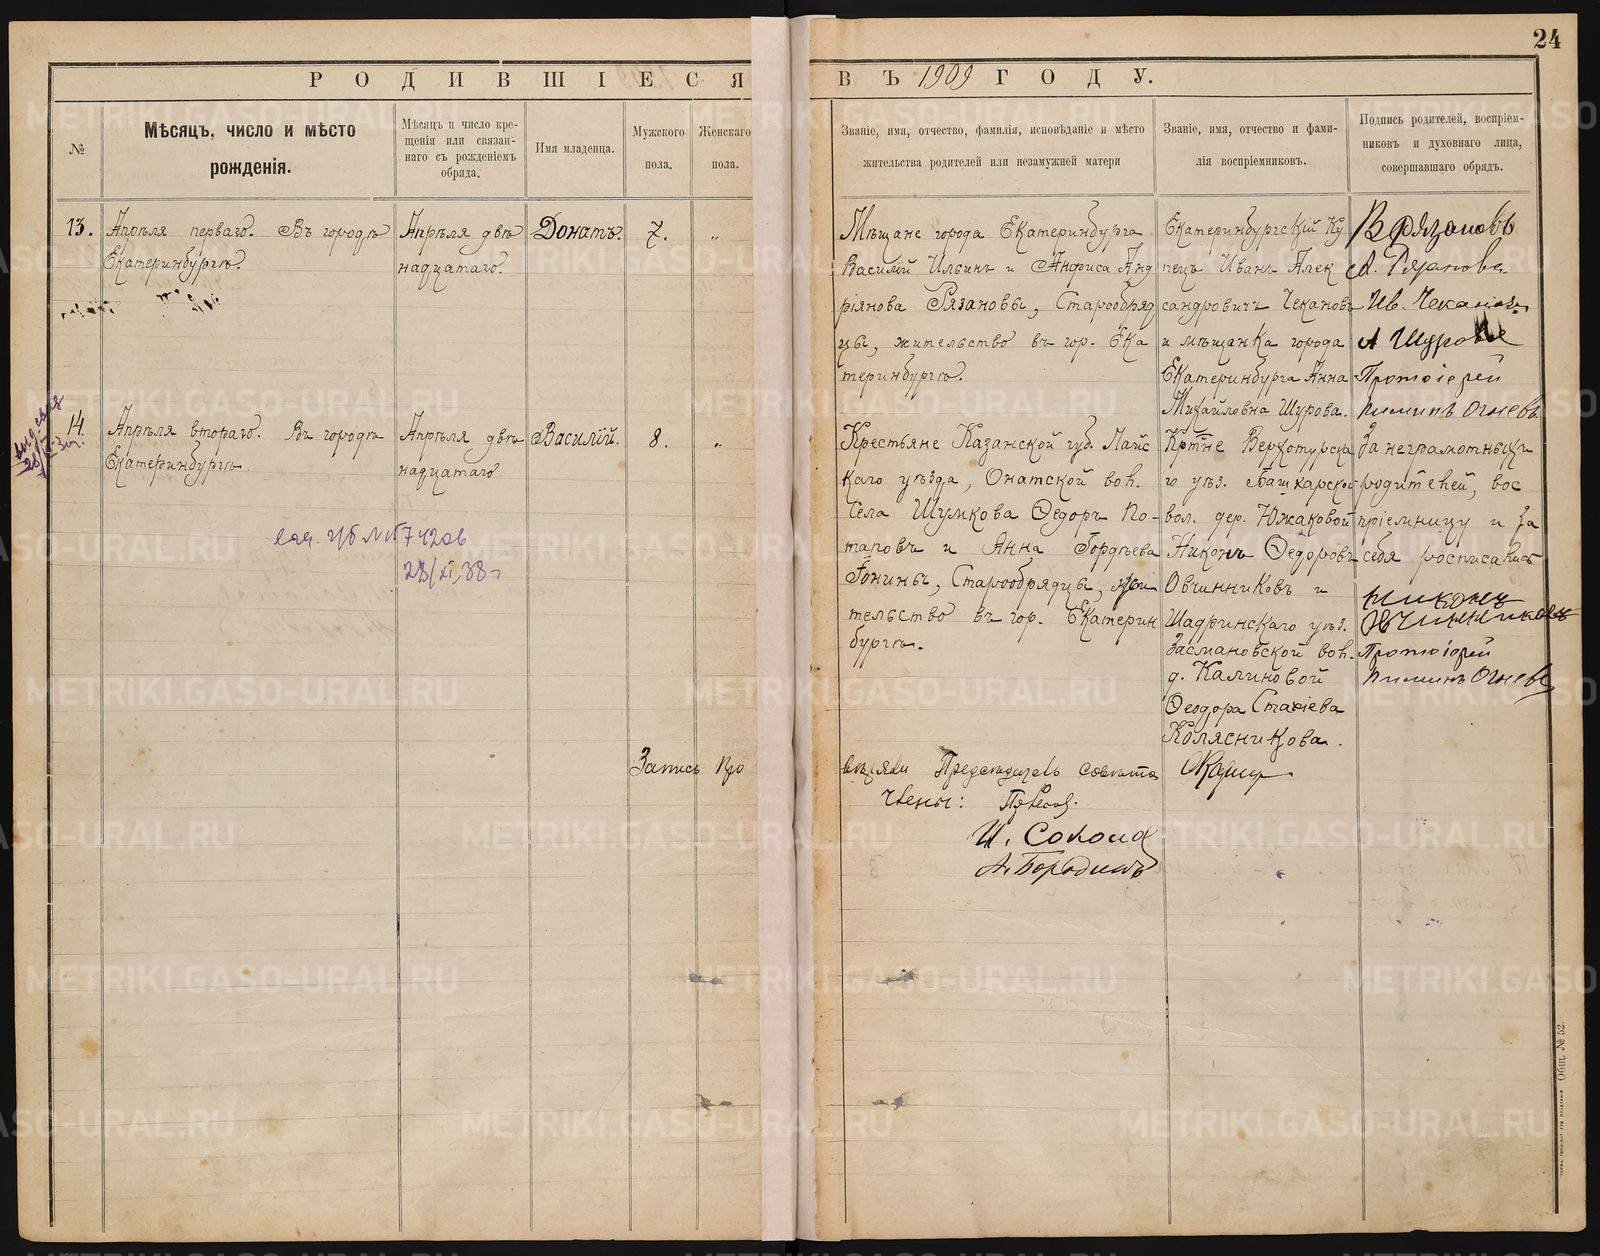 24
РОДИВШІЕСЯ ВЪ 1909 ГОДУ.
№
Мѣсяцъ, число и мѣсто
рожденія.
Мѣсяцъ и число кре-
щенія или связан-
наго съ рожденіемъ
обряда.
Имя младенца.
Мужского
пола.
Женскаго
пола.
Званіе, имя, отчество, фамилія, исповѣданіе и мѣсто
жительства родителей или незамужней матери
Званіе, имя, отчество и фами-
лія воспріемниковъ.
Подпись родителей, воспріем-
никовъ и духовнаго лица,
совершавшаго обрядъ.
13.
Апрѣля перваго. Въ городѣ
Екатеринбургѣ.
Апрѣля двѣ
надцатаго.
Донатъ.
7.
„
Мѣщане города Екатеринбурга
Василій Ильинъ и Анфиса Анд
ріянова Рязановы, Старообряд
цы, жительство въ гор. Ека
теринбургѣ.
Екатеринбургскій Ку
пецъ Иванъ Алек
сандровичъ Чекановъ
и мѣщанка города
Екатеринбурга Анна
Михайловна Щурова.
В Рязановъ
А. Рязанова
Ив. Чекановъ
А Щурова
Протоіерей
Пименъ Огневъ
14.
Апрѣля втораго. Въ городѣ
Екатеринбургѣ
Апрѣля двѣ
надцатаго
Василій.
8.
„
Крестьяне Казанской губ. Лаис
каго уѣзда, Онатской вол.
Села Шумкова Ѳедоръ По-
таповъ и Анна Гордѣева
Гонины, Старообрядцы, жи
тельство въ гор. Екатерин
бургѣ.
Кртне Верхотурска
го уѣз. Башкарской
вол. дер. Южаковой
Никонъ Ѳедоровъ
Овчинниковъ и
Шадринскаго уѣз.
Засмановской вол.
д. Калиновой
Ѳеодора Стахіева
Колясникова.
За неграмотныхъ
родителей, вос
пріемницу и за
себя росписались
Никонъ
Овчинниковъ
Протоіерей
Пименъ Огневъ
28/XI,38 г
Запись про
вѣряли Предсѣдатель совѣта
Члены:
И. Соколов
А. Бородинъ
Общ. № 52.
METRIKI.GASO-URAL.RU